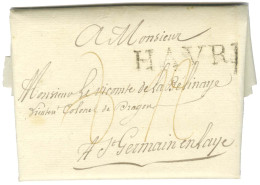 A Monsieur
HAVRE
Monsieur le vicomte de la Belinaye
Colonel de Dragon
A St Germain en Laye